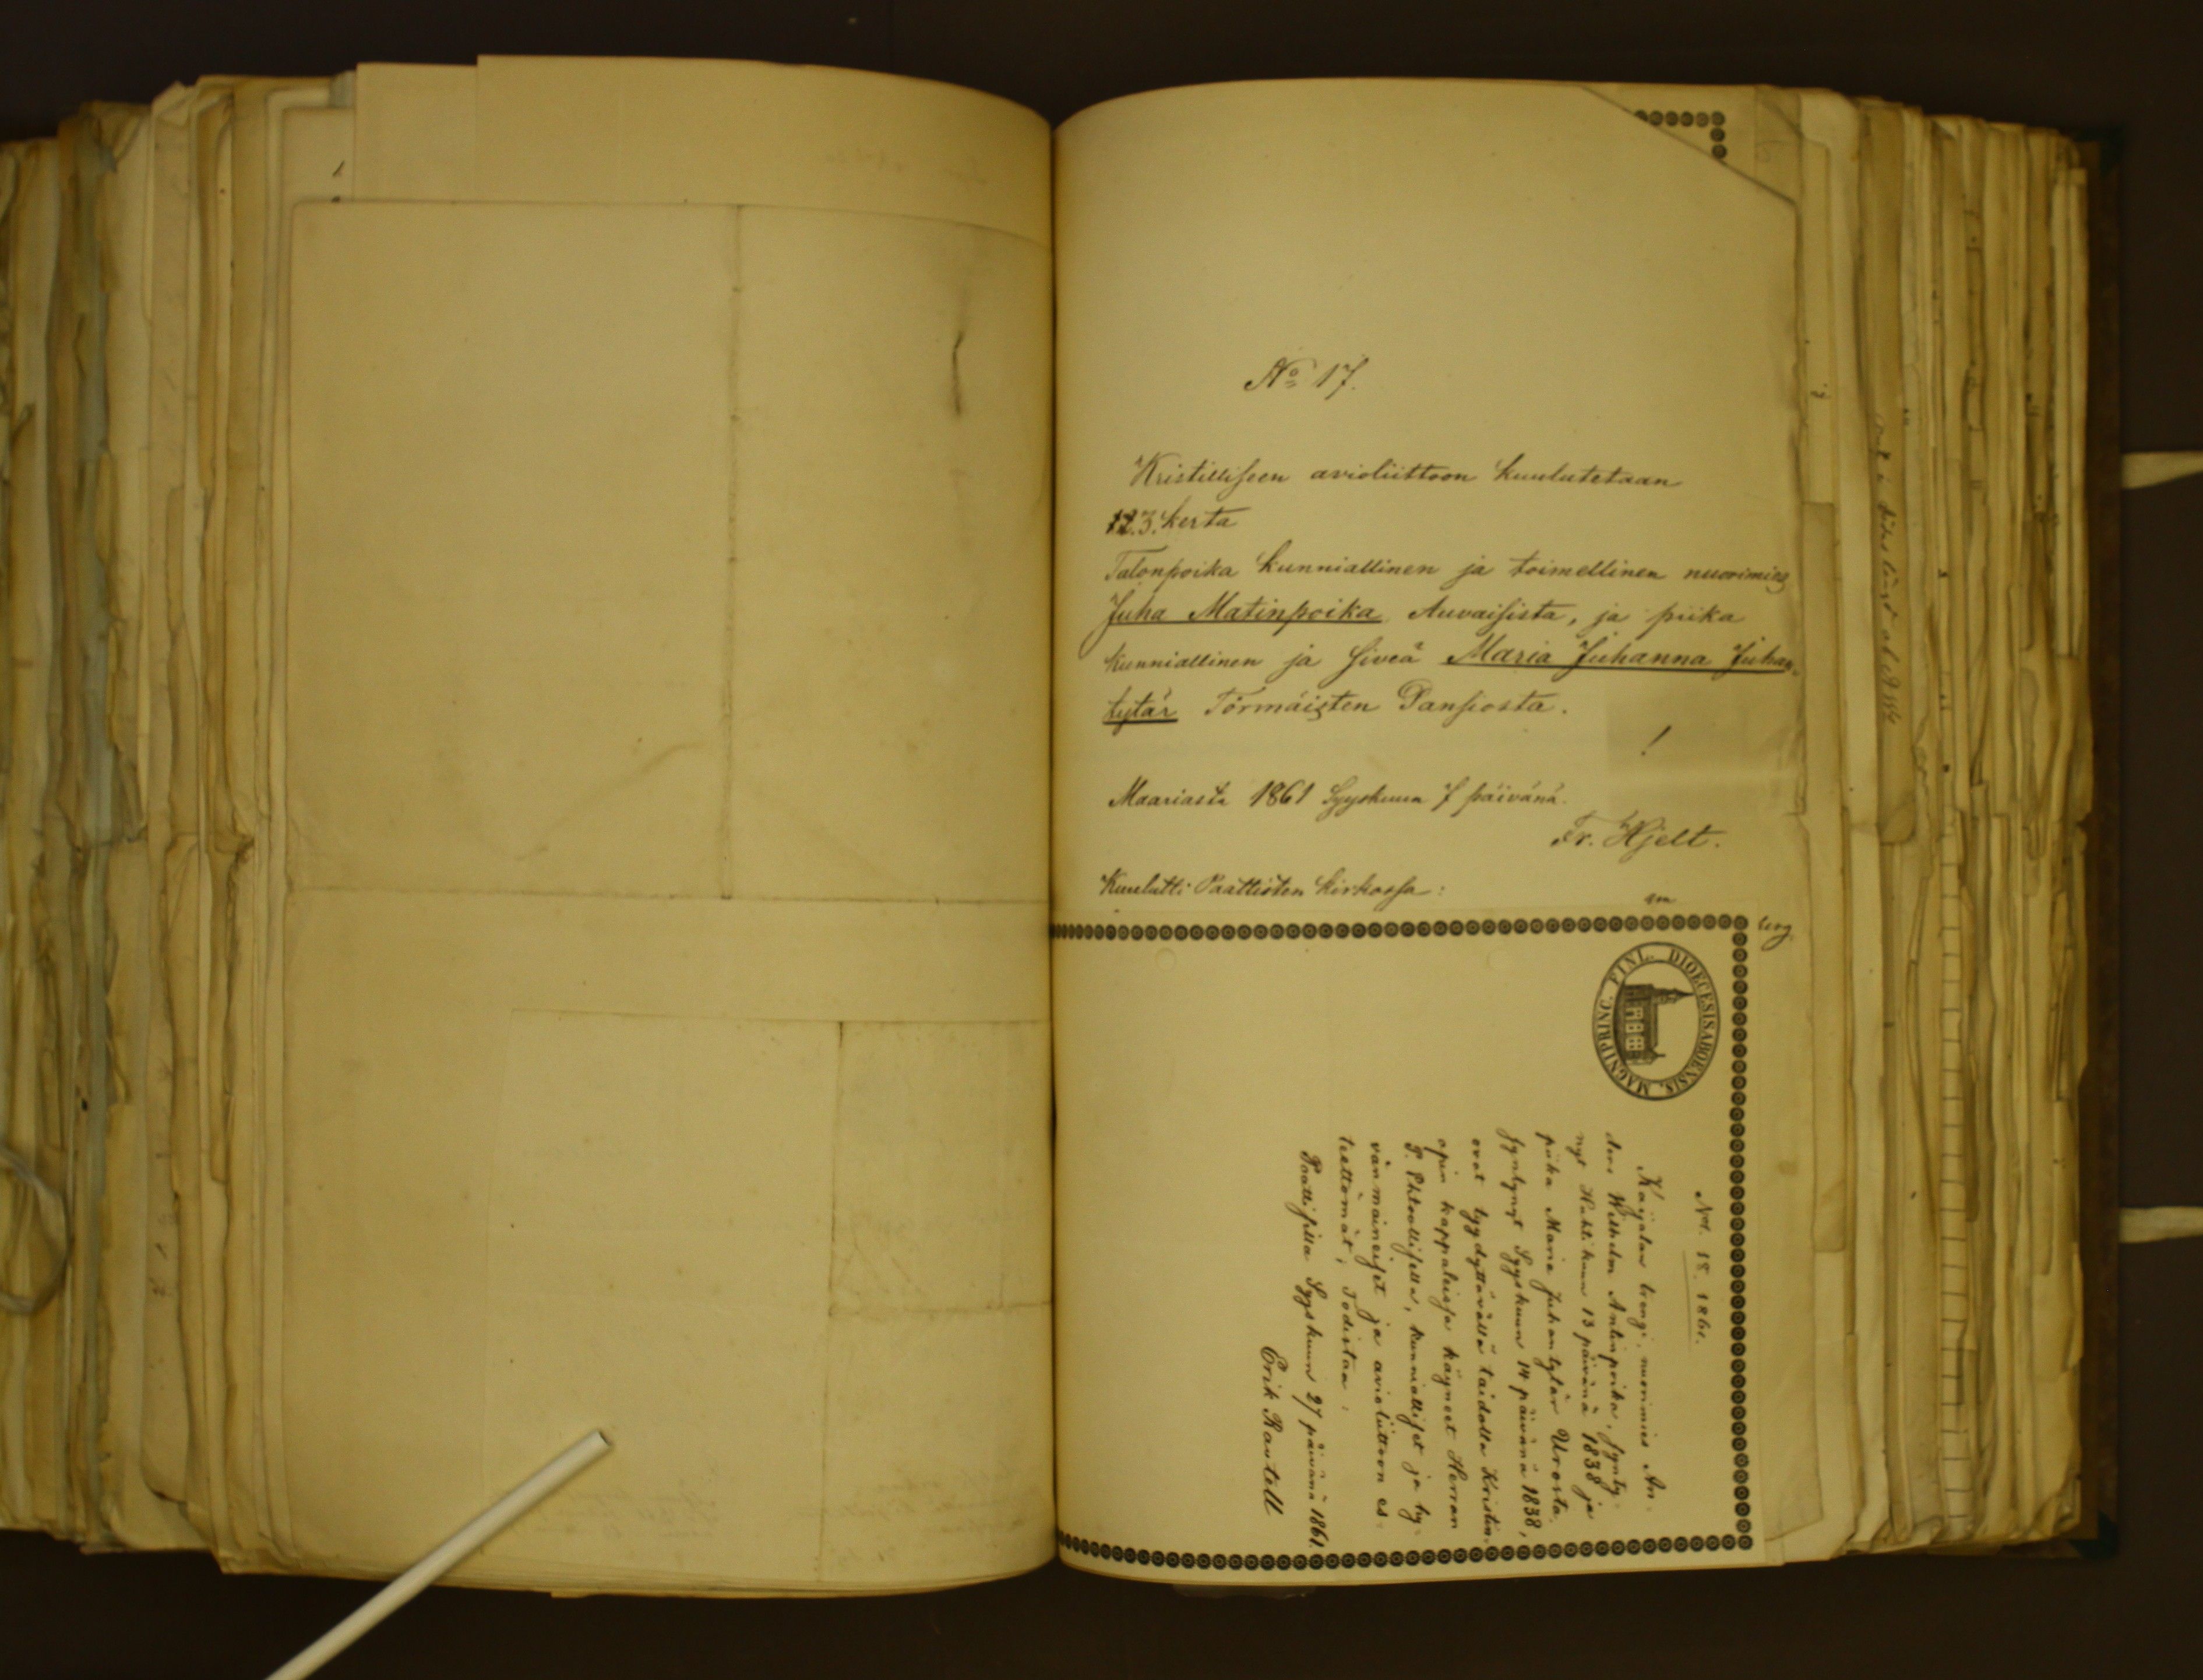 No 17.
Kristilliseen avioliittoon kuulutetaan
1.2.3. kerta
Talonpoika kunniallinen ja toimellinen nuorimies
Juha Matinpoika Auvaisista, ja piika
kunniallinen ja siveä Maria Juhanna Juhan-
tytär Törmäisten Pansiosta.
!
Maariasta 1861 Syyskuun 7 päivänä.
Fr. Hjelt.
Kuulutti Paattisten kirkossa:
MAGNI PRINC. FINL. DIOECESIS ABOENSIS.
No. 18. 1861.
trengi, nuorimies An-
ders Wilhelm Antinpoika, synty-
nyt Huhtikuun 13 päivänä 1838 ja
piika Maria Juhantytär Urosta,
syntynyt Syyskuun 14 päivänä 1838,
ovat tyydyttävällä taidolla Kristin-
opin kappaleissa käyneet Herran
P. Ehtoollisella, kunnialliset ja hy-
vänmaineiset ja avioliittoon es-
teettömät; todistaa.
Paattisilla Syyskuun 27 päivänä 1861.
Erik Rautell